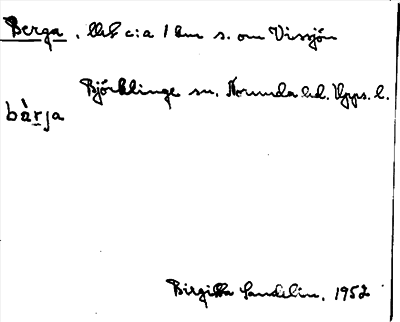 Berga. llk c:a 1 km s. om Vissjön
Björklinge sn. Norunda hd. Upps. l.
bàrja
Birgitta Sandelin. 1952